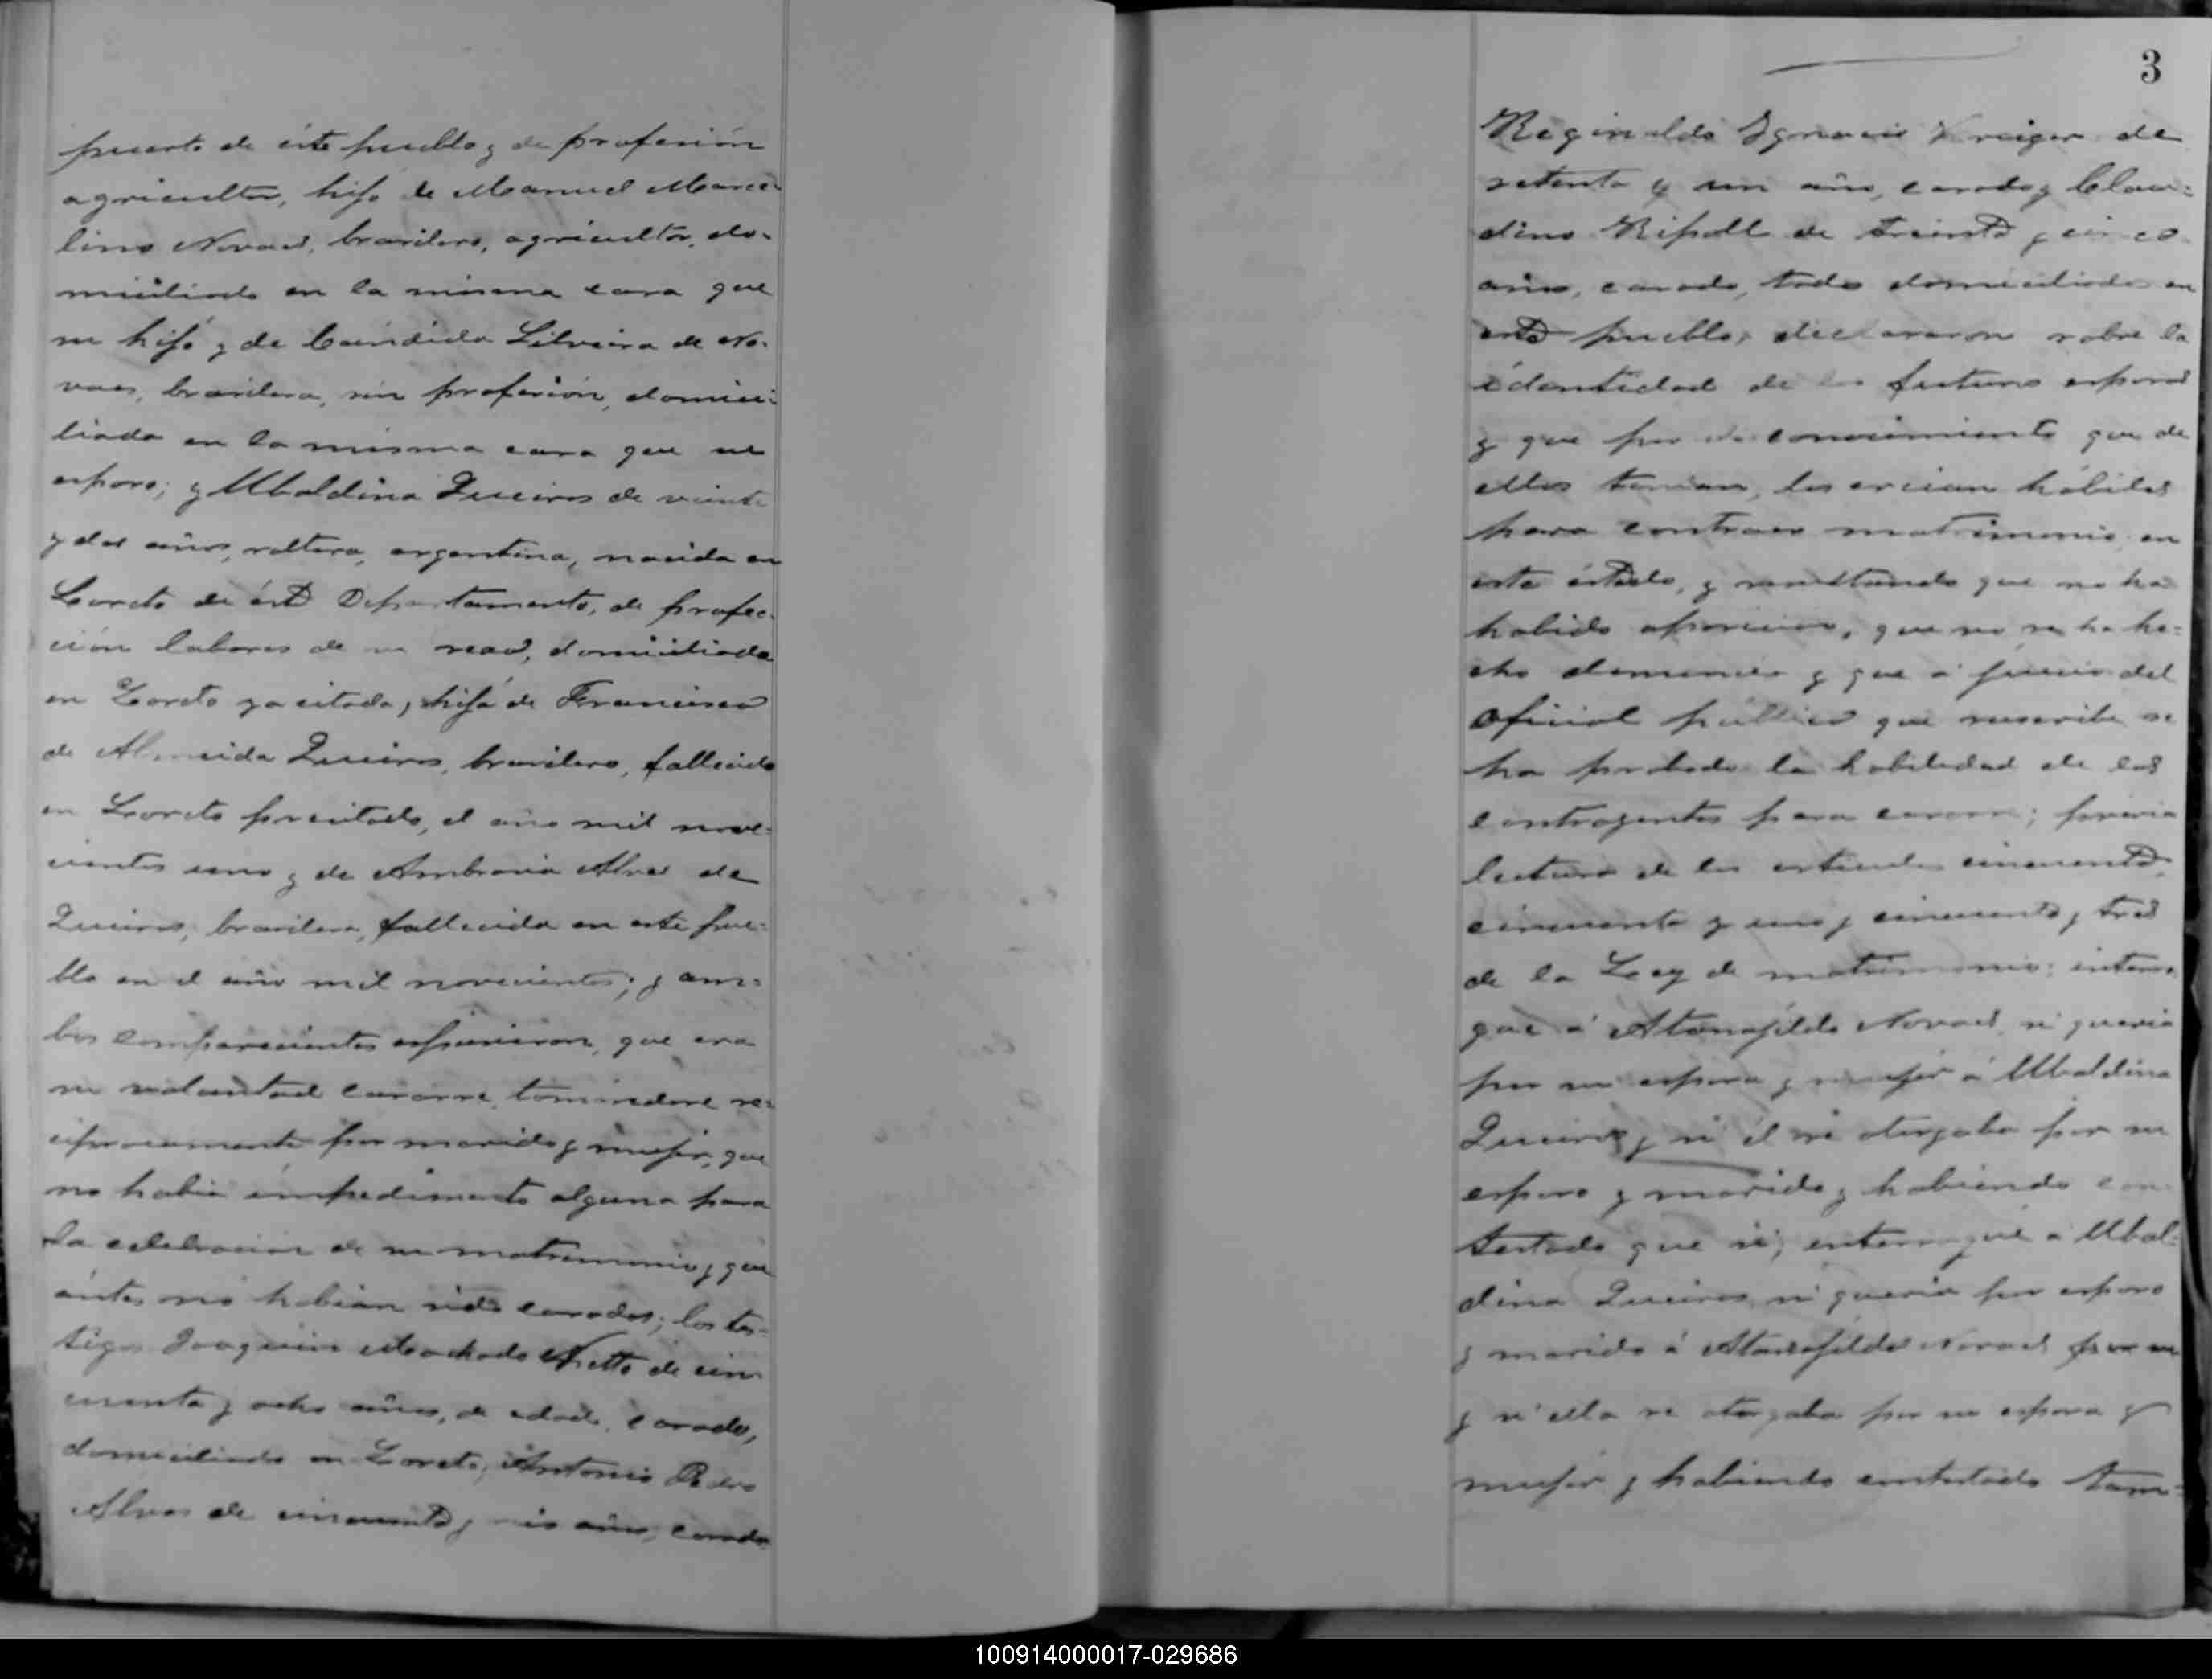 puerto de éste pueblo, de profesión
agricultor, hijo de Manuel Marce-
lino Novaes, brasilero, agricultor, do-
miciliado en la misma casa que
su hijo y de Cándida Silveira de No-
vaes, brasilera, sin profesión, domici-
liada en la misma casa que su
esposo; y Ubaldina Queiros de veinte
y dos años, soltera, argentina, nacida en
Loreto de éste Departamento, de profe-
ción labores de su sexo, domiciliada
en Loreto ya citado, hija de Francisco
de Almeida Queiros, brasilero, fallecido
en Loreto precitado, el año mil nove-
cientos uno y de Ambrosia Alves de
Queiros, brasilera, fallecida en este pue-
blo en el año mil novecientos; y am-
bos comparecientes espusieron, que era
su voluntad casarse, tomándose re-
ciprocamente por marido y mujer, que
no habia impedimento alguno para
la celebracion de su matrimonio y que
ántes no habian sido casados; los tes-
tigos Joaquin Machado Netto de cin-
cuenta y ocho años, de edad, casado,
domiciliado en Loreto, Antonio Pedro
Alves de cincuenta y seis años, casado
3
Reginaldo Ignacio Kreiger de
setenta y un año, casado y Clau-
dino Ripoll de treinta y cinco
años, casado, todos domiciliados en
este pueblo, declararon sobre la
identidad de los futuros esposos
y que por el conocimiento que de
ellos tenian, los creian hábiles
para contraer matrimonio en
este estado, y resultando que no ha
habido oposicion, que no se ha he-
cho denuncia y que á juicio del
oficial público que suscribe se
ha probado la habilidad de los
contrayentes para casarse; previa
lectura de los articulos cincuenta,
cincuenta y uno y cincuenta y tres
de la Ley de matrimonio: interro-
gué á Atanajildo Novaes, si queria
por su esposa y mujer á Ubaldina
Queiros y si él se otorgaba por su
esposo y marido y habiendo con-
testado que si; interrogué a Ubal-
dina Queiros si queria por esposo
y marido á Atanajildo Novaes por su
y si ella se otorgaba por su esposa y
mujer y habiendo contestado tam-
100914000017-029686